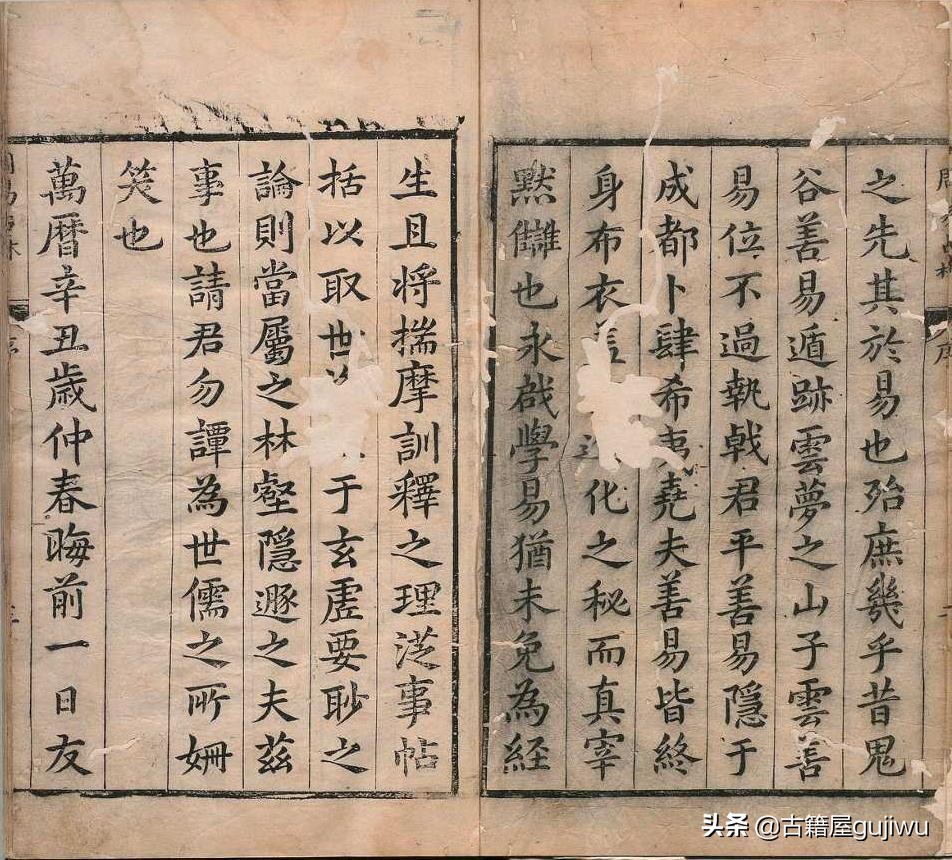 之先其於易也殆庶幾乎昔鬼
谷善易遁跡雲夢之山子雲善
易位不過執戟君平善易隱于
成都卜肆希夷堯夫善易皆終
身布衣化之秘而真宰
黙讎也永戗學易猶未免為経
生且将揣摩訓釋之理從事帖
括以取世于玄虚要眇之
論則當屬之林壑隱遯之夫茲
事也請君勿譚為世儒之所姍
笑也
萬曆辛丑歲仲春晦前一日友
头条 @古籍屋gujiwu